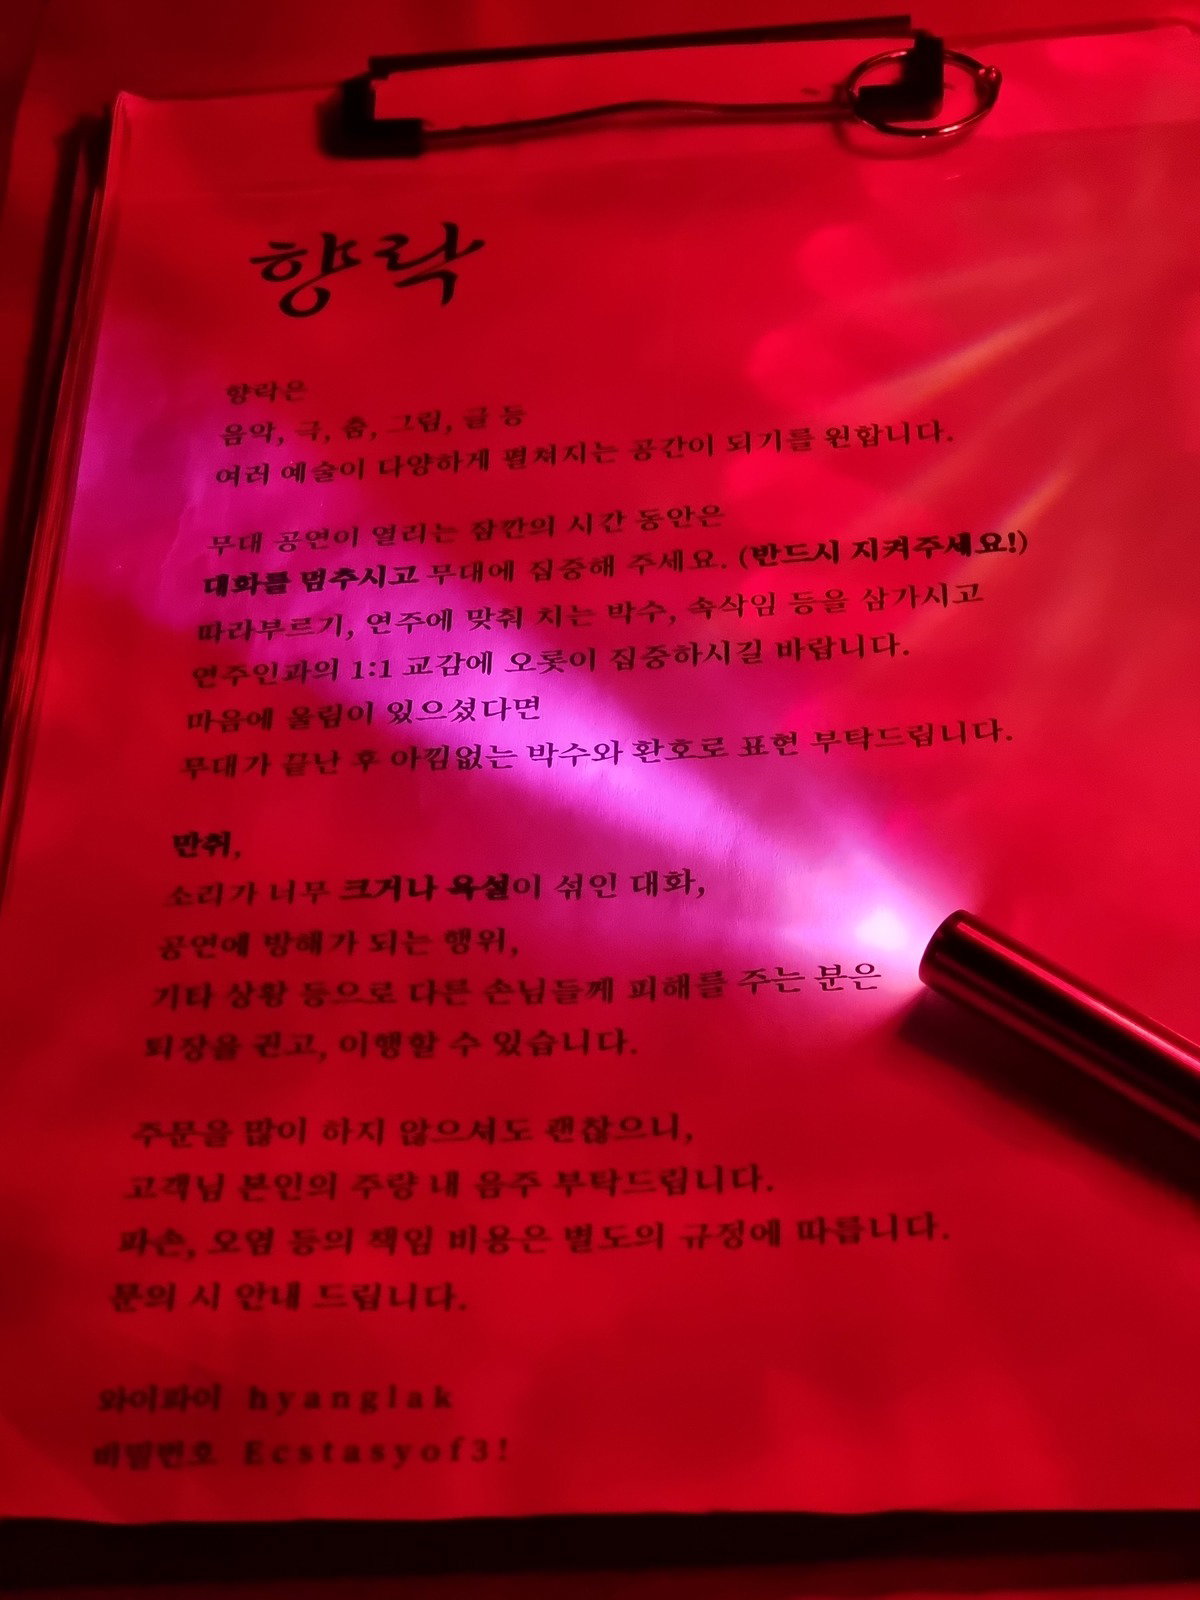 향락
향락은
음악, 극, 춤, 그림, 글 등
여러 예술이 다양하게 펼쳐지는 공간이 되기를 원합니다.
무대 공연이 열리는 잠깐의 시간 동안은
대화를 멈추시고 무대에 집중해 주세요. (반드시 지켜주세요!)
따라부르기, 연주에 맞춰 치는 박수, 속삭임 등을 삼가시고
연주인과의 1:1 교감에 오롯이 집중하시길 바랍니다.
마음에 울림이 있으셨다면
무대가 끝난 후 아낌없는 박수와 환호로 표현 부탁드립니다.
만취,
소리가 너무 크거나 욕설이 섞인 대화,
공연에 방해가 되는 행위,
기타 상황 등으로 다른 손님들께 피해를 주는 분은
퇴장을 권고, 이행할 수 있습니다.
주문을 많이 하지 않으셔도 괜찮으니,
고객님 본인의 주량 내 음주 부탁드립니다.
파손, 오염 등의 책임 비용은 별도의 규정에 따릅니다.
문의 시 안내 드립니다.
와이파이 hyanglak
비밀번호 Ecstasyof3!